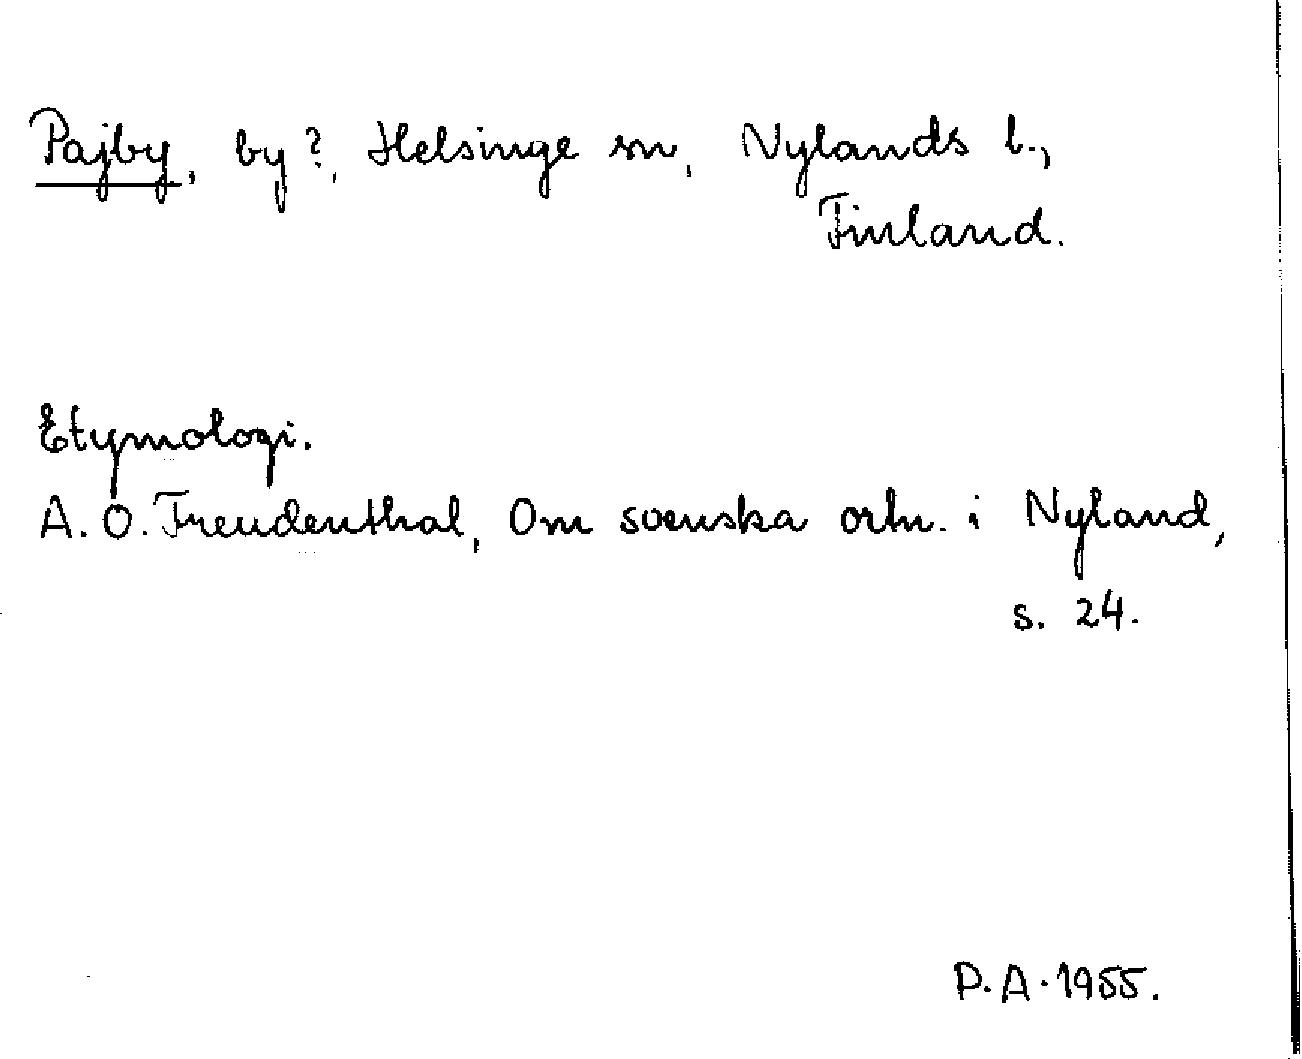 Pajby, by?, Helsinge sn, Nylands l.,
Finland.
Etymologi.
A. O. Freudenthal, Om svenska ortn. i Nyland,
s. 24.
P.A. 1955.